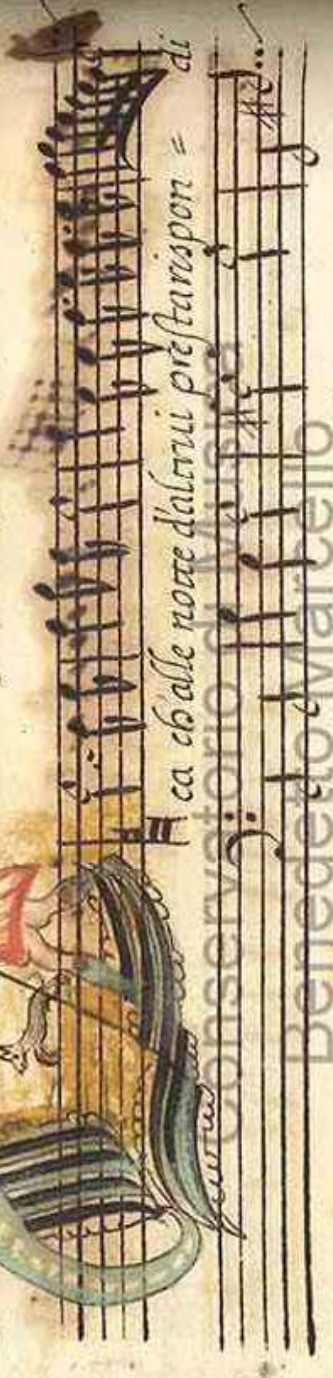 ca ch'alle notte d'altrui prestarispon = di
Conservatorio di Musica
Benedetto Marcello